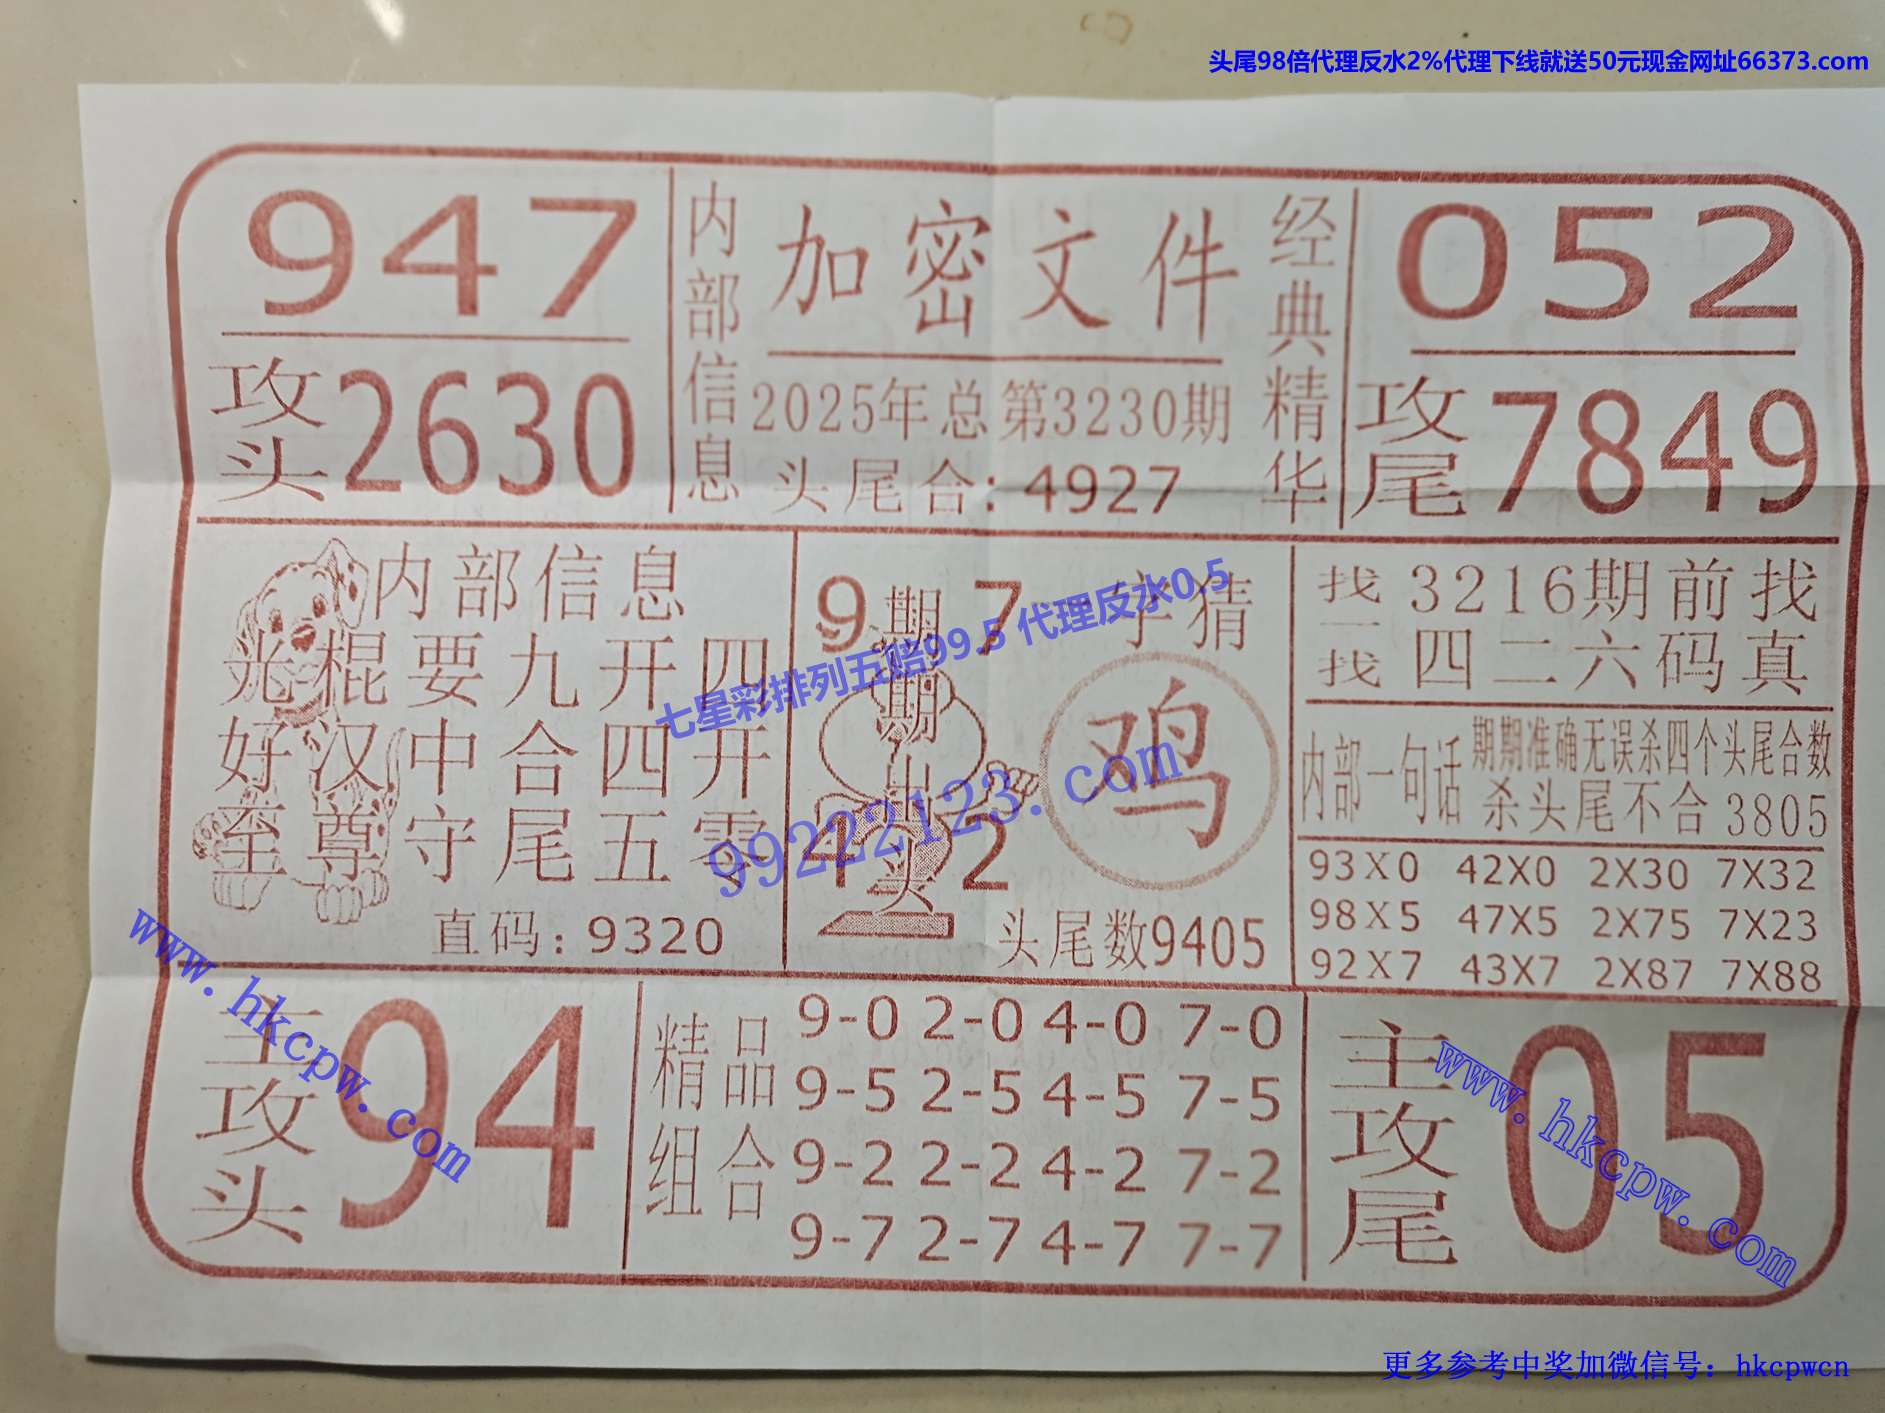 头尾98倍代理反水2%代理下线就送50元现金网址66373.com
947
攻头2630
内部信息
加密文件
2025年总第3230期
头尾合：4927
经典精华
052
攻尾7849
内部信息
光棍要九开四
好汉中合四开
至尊守尾五零
直码：9320
9 7
期期出头
4 2
一字猜
鸡
头尾数9405
找一找
3216期前找
四二六码真
内部一句话
期期准确无误杀四个头尾合数
杀头尾不合3805
93X0 42X0 2X30 7X32
98X5 47X5 2X75 7X23
92X7 43X7 2X87 7X88
主攻头
94
精品组合
9-0 2-0 4-0 7-0
9-5 2-5 4-5 7-5
9-2 2-2 4-2 7-2
9-7 2-7 4-7 7-7
主攻尾
05
七星彩排列五赔99.5 代理反水0.5
99222123.com
www.hkcpw.com
www.hkcpw.com
更多参考中奖加微信号：hkcpwcn